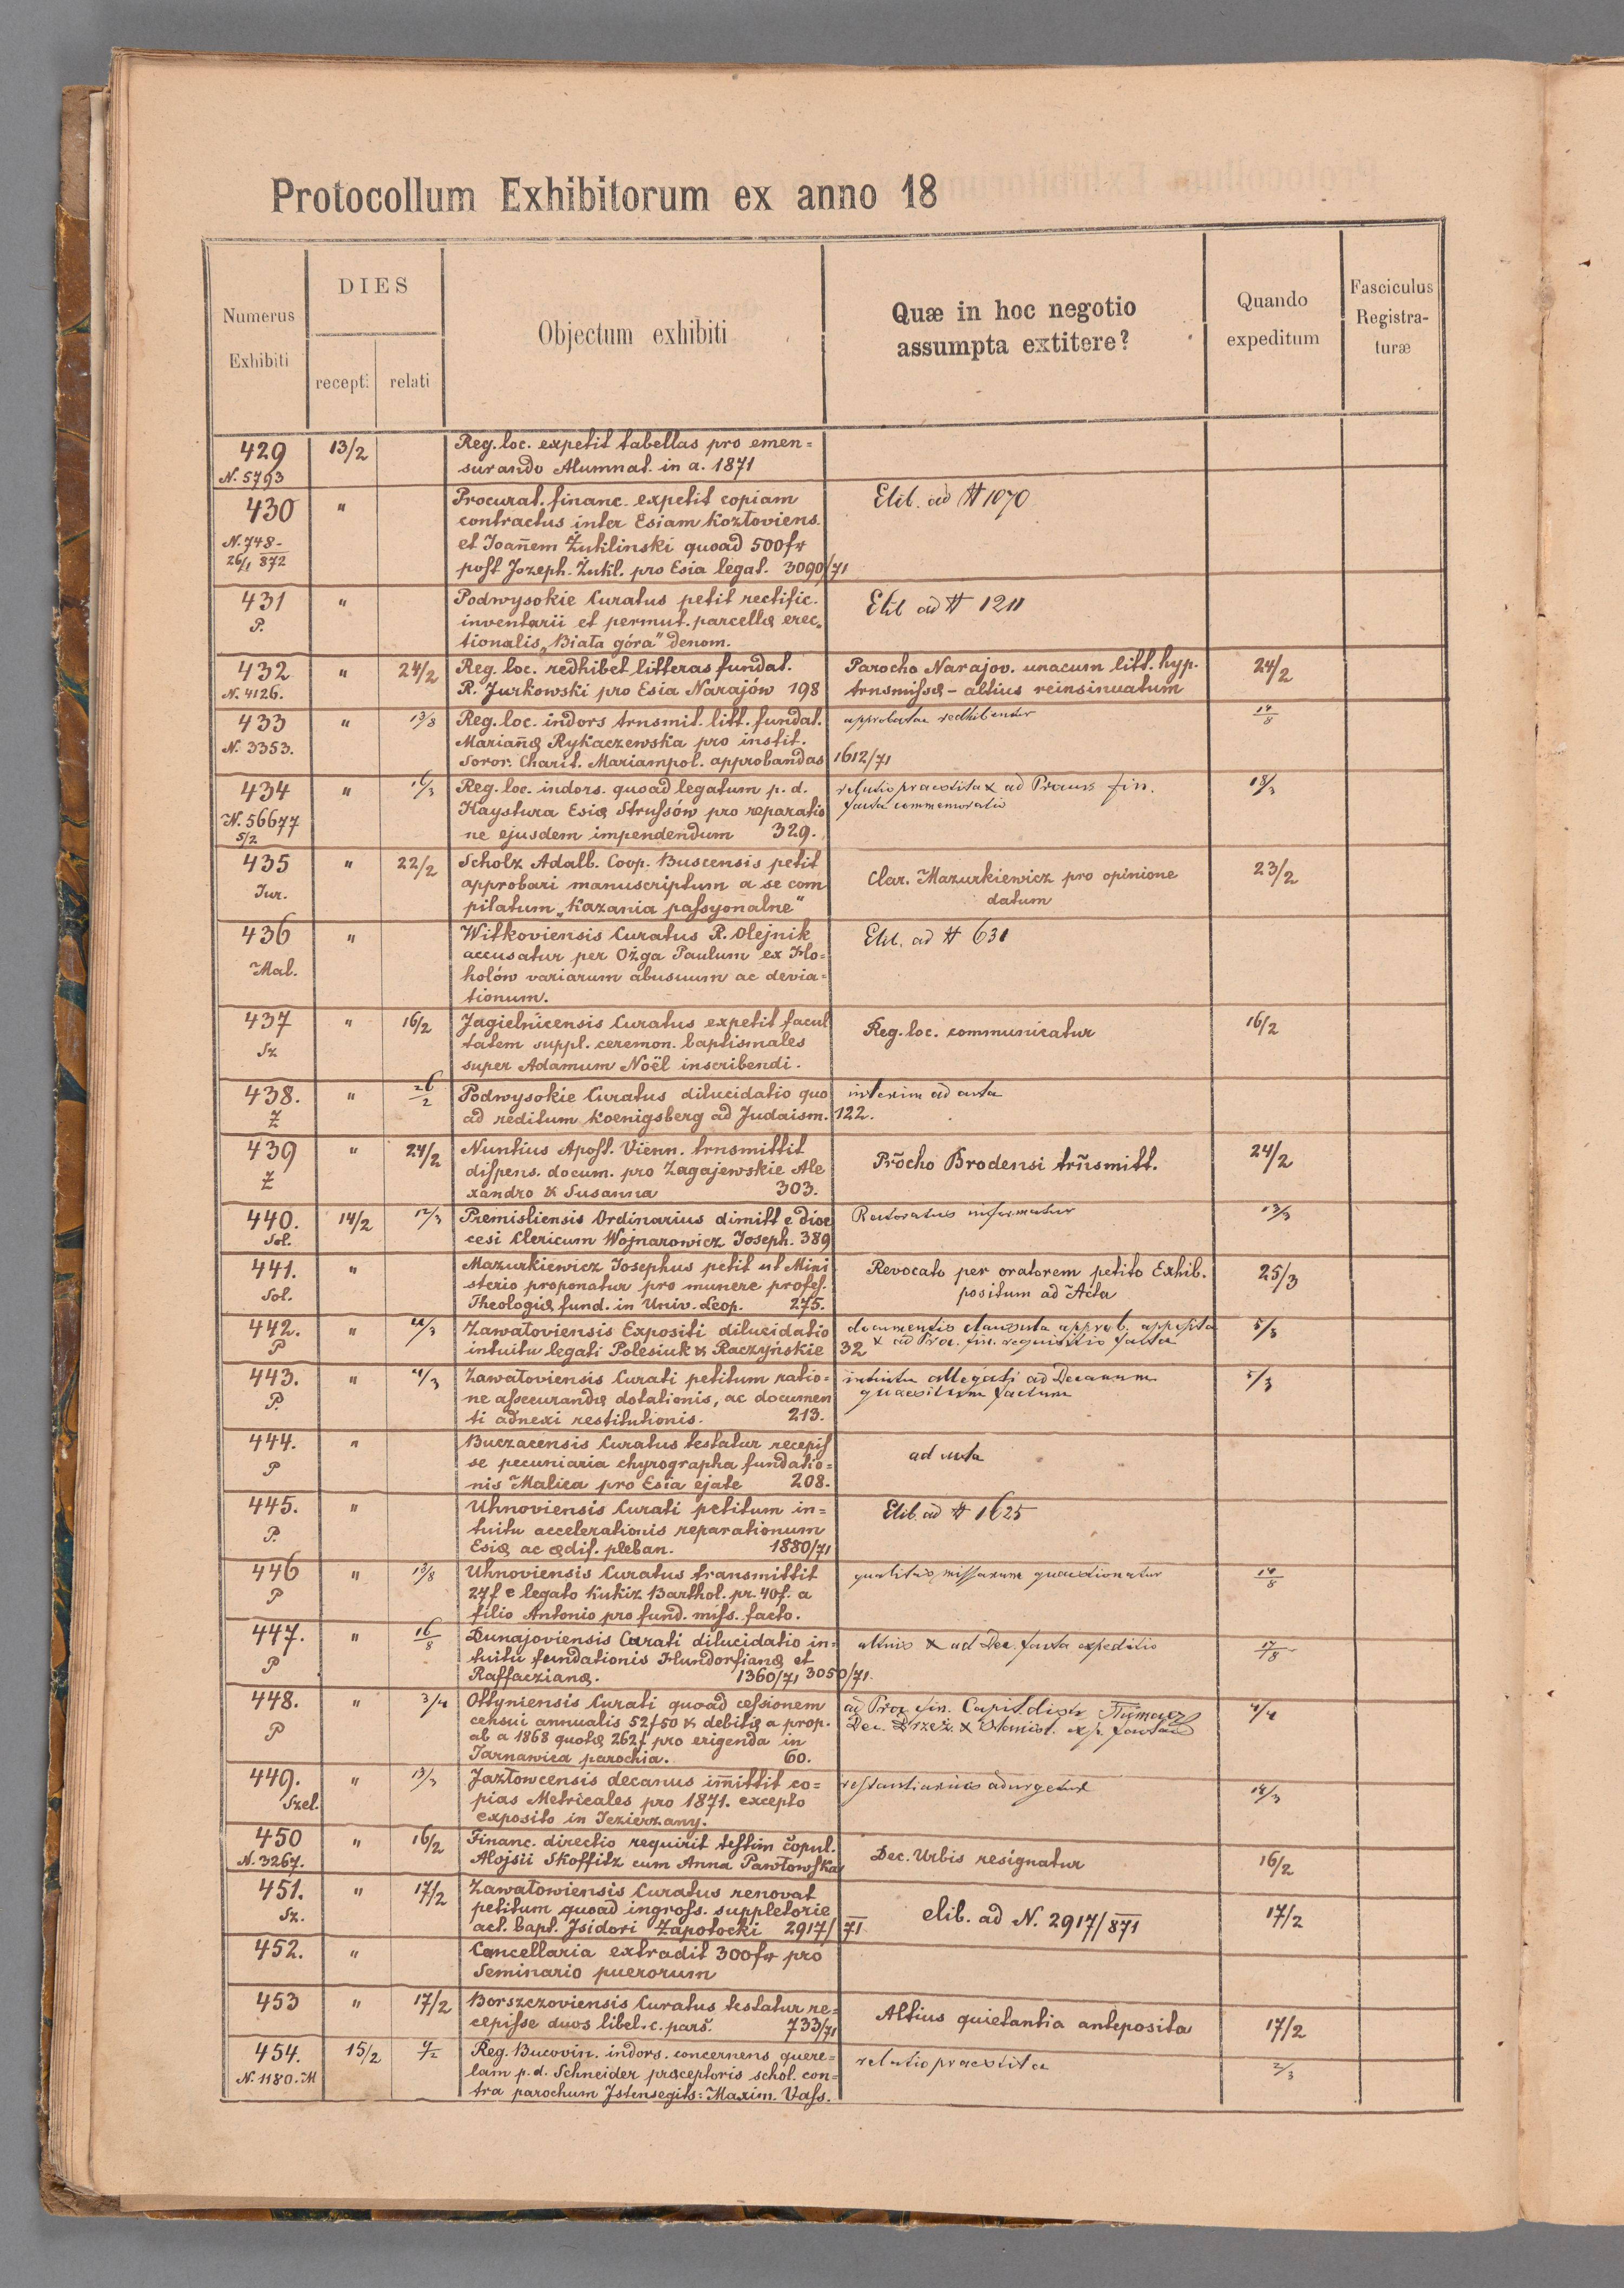 Protocollum Exhibitorum ex anno 18
Numerus Exhibiti
DIES
recept: relati
Objectum exhibiti
Quæ in hoc negotio
assumpta extitere?
Quando
expeditum
Fasciculus
Registra-
turæ
429 13/2 Reg. loc. expetit tabellas pro emen=
N. 5793 surando Alumnat. in a. 1871
430 " Procurat. financ. expetit copiam Elib. ad # 1070
contractus inter Esiam Kozłoviens.
N. 748- et Joañem Żuklinski quoad 500 fr
26/1 872 post Jozeph. Żukl. pro Esia legat. 3090/71
431 " Podwysokie Curatus petit rectific. Elib ad # 1211
P. inventarii et permut. parcellę erec„
tionalis „Biała góra" denom.
432 " 24/2 Reg. loc. redhibet litteras fundat. Parocho Narajov. unacum litt. hyp. 24/2
N. 4126. R. Jurkowski pro Esia Narajów 198 trnsmissę - altius reinsinuatum
433 " 13/8 Reg. loc. indors trnsmit. litt. fundat. approbatae redhibentur 14/8
N. 3353. Mariañę Rykaczewska pro instit.
Soror. Charit. Mariampol. approbandas 1612/71
434 " 16/3 Reg. loc. indors. quoad legatum p. d. relatio praestita & ad Procur. fin. 18/3
N. 56677 Haystura Esię Strussów pro reparatio facta commemoratio
5/2 ne ejusdem impendendum 329.
435 " 22/2 Scholz Adalb. Coop. Buscensis petit Clar. Mazurkiewicz pro opinione 23/2
Jur. approbari manuscriptum a se com datum
pilatum „Kazania passyonalne"
436 " Witkoviensis Curatus R. Olejnik Elib. ad # 631
Mal. accusatur per Ożga Paulum ex Ho=
holów variarum abusuum ac devia=
tionum.
437 " 16/2 Jagielnicensis Curatus expetit facul Reg. loc. communicatur 16/2
Sz tatem suppl. ceremon. baptismales
super Adamum Noël inscribendi.
438. " 26/2 Podwysokie Curatus dilucidatio quo interim ad acta
Z ad reditum Koenigsberg ad Judaism. 122.
439 " 24/2 Nuntius Apost. Vienn. trnsmittit Prõcho Brodensi trñsmitt. 24/2
Z dispens. docum. pro Zagajewskie Ale
xandro & Susanna 303.
440. 14/2 12/3 Premisliensis Ordinarius dimitt e dioe Rectoratus informatur 13/3
Sol. cesi Clericum Wojnarowicz Joseph. 389
441. " Mazurkiewicz Josephus petit ut Mini Revocato per oratorem petito Exhib. 25/3
Sol. sterio proponatur pro munere profes. positum ad Acta
Theologię fund. in Univ. Leop. 275.
442. " 4/3 Zawałoviensis Expositi dilucidatio documentis clausula approb. apposita 5/3
P intuitu legati Polesiuk & Raczyńskie 32 & ad Proc. fin. requisitio facta
443. " 4/3 Zawałoviensis Curati petitum ratio= intuitu allegati ad Decanum 5/3
P. ne assecurandę dotationis, ac documen quaesitum factum
ti adnexi restitutionis. 213.
444. " Buczacensis Curatus testatur recepis ad acta
P se pecuniaria chyrographa fundatio=
nis Malica pro Esia ejate 208.
445. " Uhnoviensis Curati petitum in= Elib. ad # 1625
P. tuitu accelerationis reparationum
Esię ac ędif. pleban. 1880/71
446 " 13/8 Uhnoviensis Curatus transmittit qualitas missarum quaestionatur 14/8
P 27f e legato Kukiz Barthol. pr. 40f. a
filio Antonio pro fund. miss. facto.
447. " 16/8 Dunajoviensis Curati dilucidatio in= altius & ad Dec. facta expeditio 17/8
P tuitu fundationis Hundorfianę et
Raffaczianę. 1360/71 3050/71.
448. " 3/4 Ottyniensis Curati quoad cessionem ad Proc. fin. Capit. distr. Tłumacz 4/4
P census annualis 52f50 & debitę a prop. Dec. & Stanisl. exp. facta
ab a 1868 quotę 262f. pro erigenda in
Tarnawica parochia. 60.
449. " 13/3 Jazłowcensis decanus im̃ittit co= restantiarius adurgetur 14/3
Szel. pias Metricales pro 1871. excepto
exposito in Jezierzany.
450 " 16/2 Financ. directio requirit testim copul. Dec. Urbis resignatur 16/2
N. 3267. Alojsii Skoffitz cum Anna Pawłowska
451. " 17/2 Zawałowiensis Curatus renovat elib. ad N. 2917/871 17/2
Sz. petitum quoad ingross. suppletorie
act. bapt. Jsidori Zapotocki 2917/71
452. " Cancellaria extradit 300fr pro
Seminario puerorum
453 " 17/2 Borszczoviensis Curatus testatur re= Altius quietantia anteposita 17/2
cepisse duos libel. c. pars. 733/71
454. 15/2 Reg. Bucovin. indors. concernens quere= relatio praestita 2/3
N. 1180. M lam p. d. Schneider pręceptoris schol. con=
tra parochum Jstensegits: Maxim. Vass.